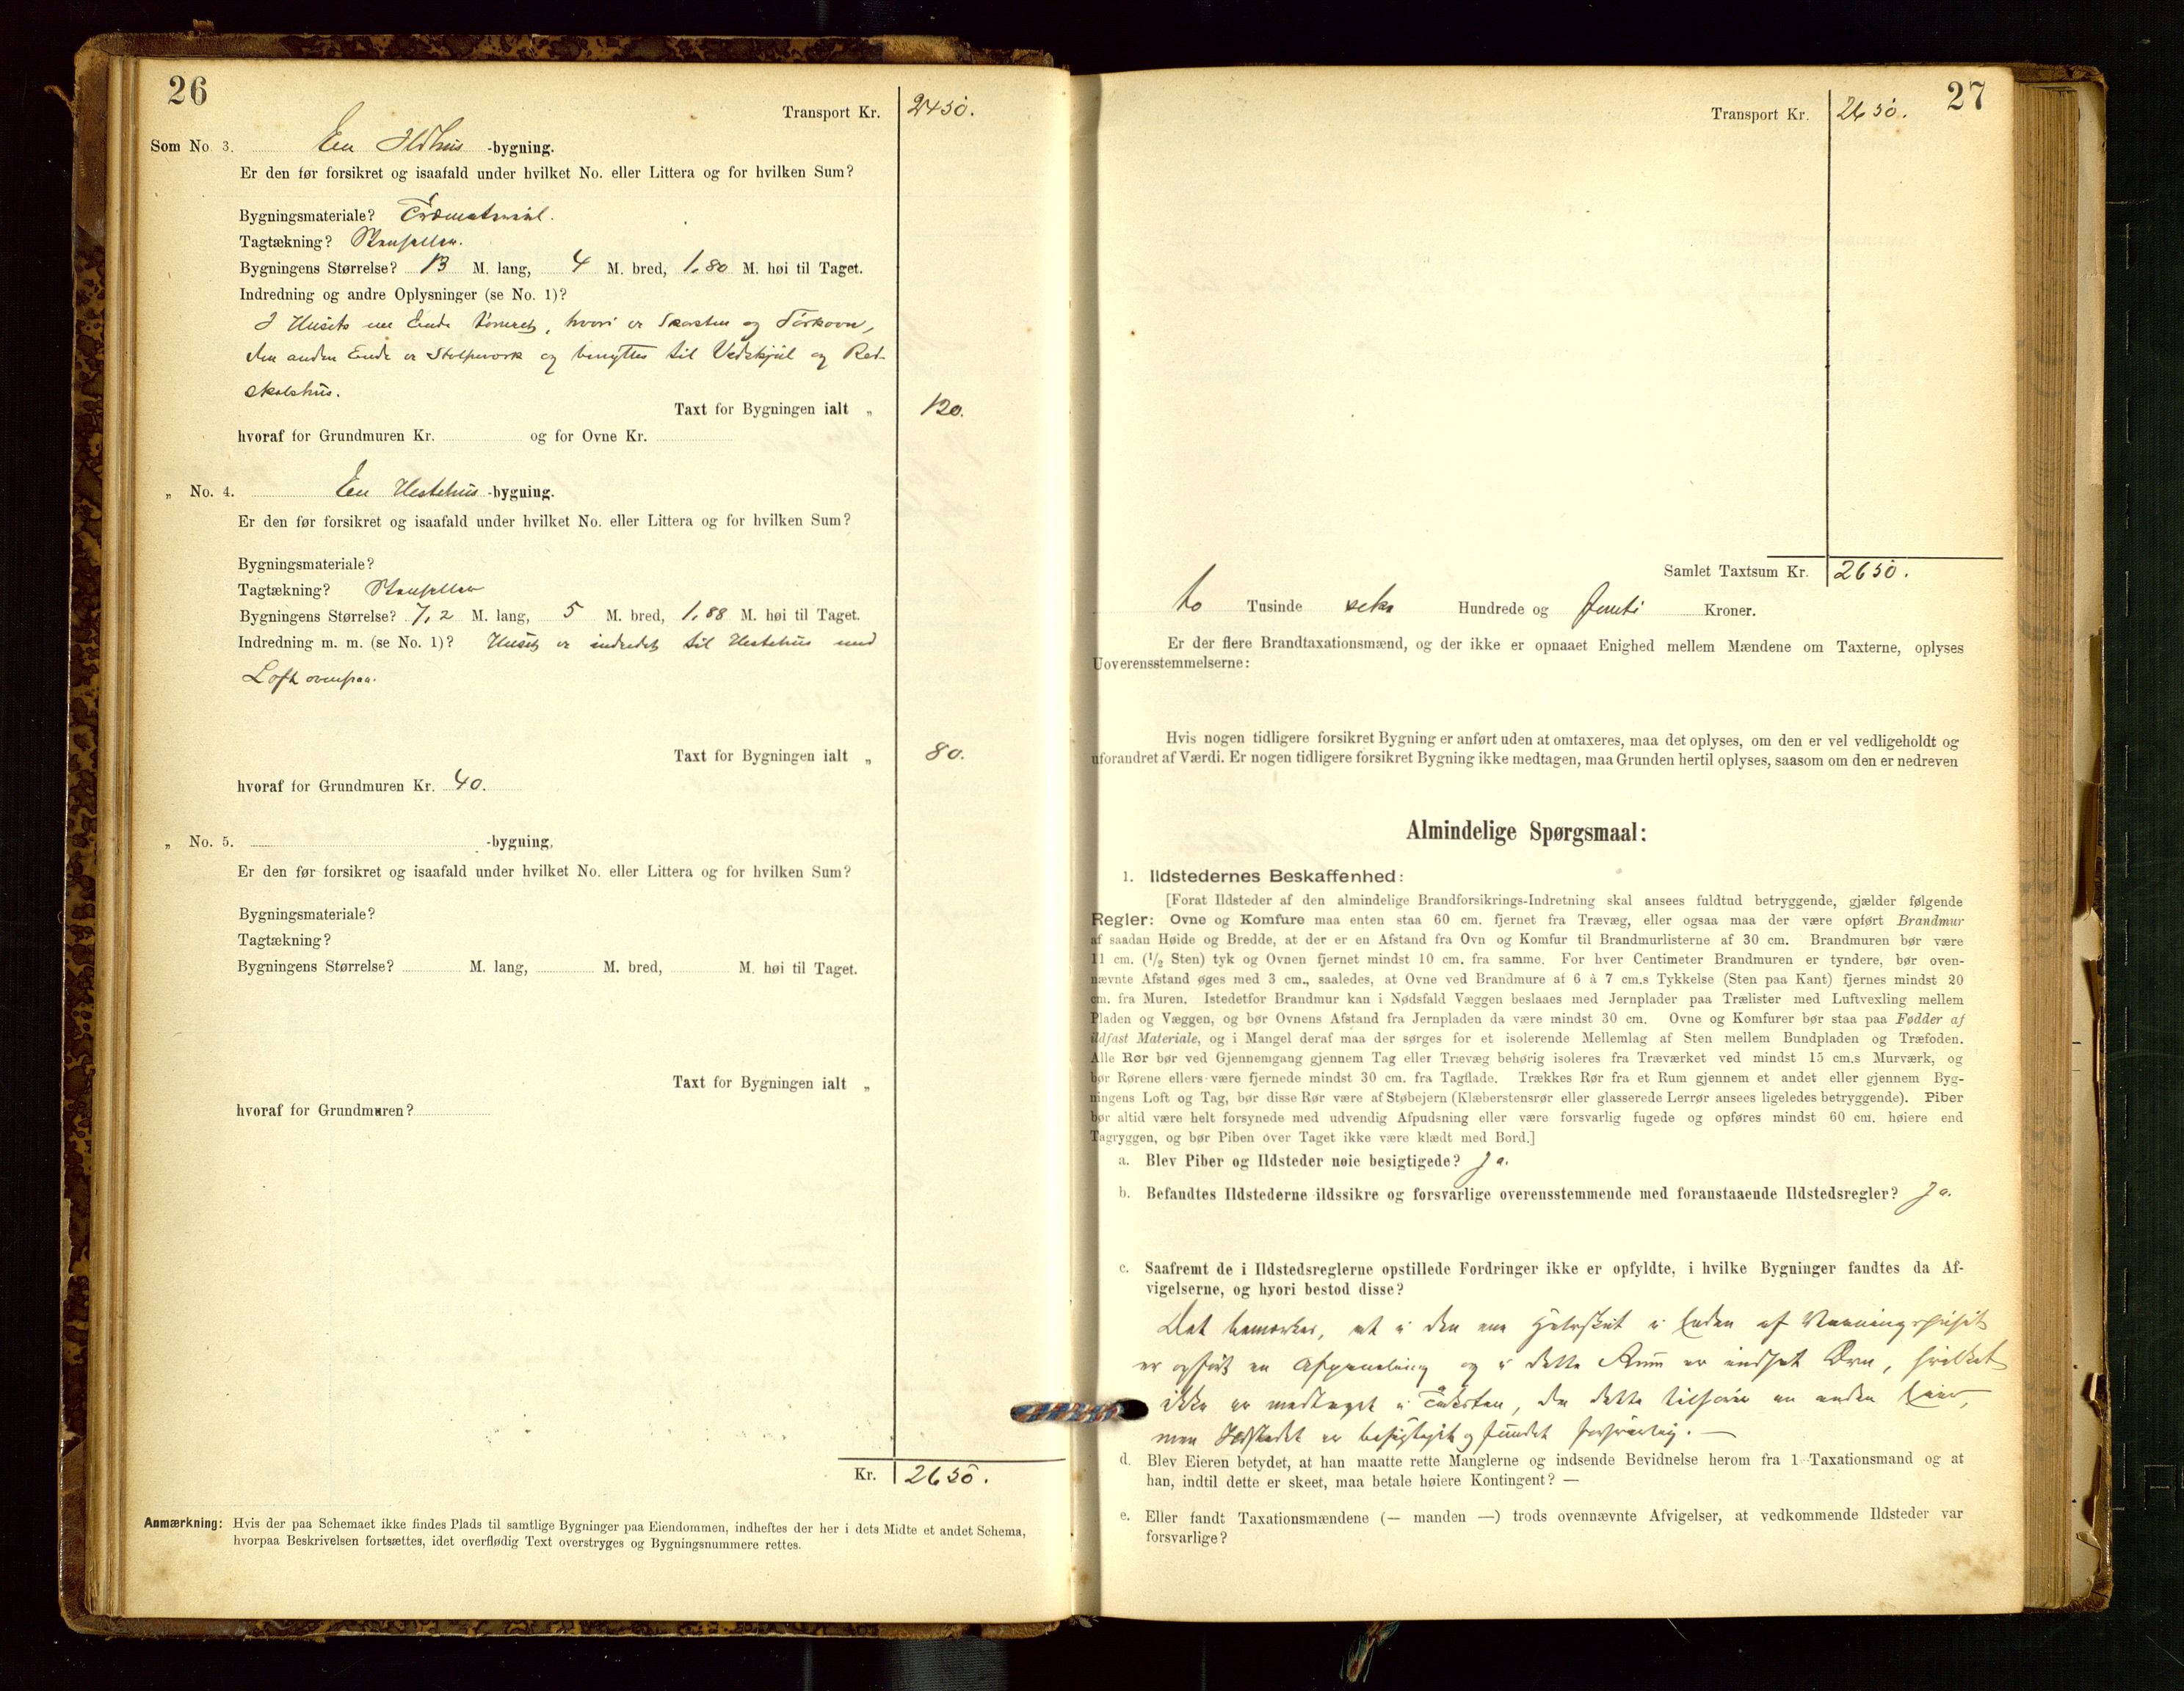 26
Transport Kr. 2450.
Som No. 3. En Ildhus -bygning.
Er den før forsikret og isaafald under hvilket No. eller Littera og for hvilken Sum?
Bygningsmateriale? Træmaterial.
Tagtækning? Stenheller.
Bygningens Størrelse? 13 M. lang, 4 M. bred, 1,80 M. høi til Taget.
Indredning og andre Oplysninger (se No. 1)?
I Husets ene Ende tømret, hvori er Skorsten og Tørkovn,
den anden Ende er Stolpverk og benyttes til Vedskjul og Red-
skabshus.
Taxt for Bygningen ialt „ 120.
hvoraf for Grundmuren Kr. og for Ovne Kr.
„ No. 4. En Hestehus -bygning.
Er den før forsikret og isaafald under hvilket No. eller Littera og for hvilken Sum?
Bygningsmateriale?
Tagtækning? Stenheller
Bygningens Størrelse? 7,2 M. lang, 5 M. bred, 1,88 M. høi til Taget.
Indredning m. m. (se No. 1)? Huset er indredet til Hestehus med
Loft ovenpaa.
Taxt for Bygningen ialt „ 80.
hvoraf for Grundmuren Kr. 40.
„ No. 5. -bygning.
Er den før forsikret og isaafald under hvilket No. eller Littera og for hvilken Sum?
Bygningsmateriale?
Tagtækning?
Bygningens Størrelse? M. lang, M. bred, M. høi til Taget.
Taxt for Bygningen ialt „
hvoraf for Grundmuren?
Kr. 2650.
Anmærkning: Hvis der paa Schemaet ikke findes Plads til samtlige Bygninger paa Eiendommen, indheftes der her i dets Midte et andet Schema,
hvorpaa Beskrivelsen fortsættes, idet overflødig Text overstryges og Bygningsnummere rettes.
27
Transport Kr. 2650.
Samlet Taxtsum Kr. 2650.
to Tusinde seks Hundrede og femti Kroner.
Er der flere Brandtaxationsmænd, og der ikke er opnaaet Enighed mellem Mændene om Taxterne, oplyses
Uoverensstemmelserne:
Hvis nogen tidligere forsikret Bygning er anført uden at omtaxeres, maa det oplyses, om den er vel vedligeholdt og
uforandret af Værdi. Er nogen tidligere forsikret Bygning ikke medtagen, maa Grunden hertil oplyses, saasom om den er nedreven
Almindelige Spørgsmaal:
1. Ildstedernes Beskaffenhed:
[Forat Ildsteder af den almindelige Brandforsikrings-Indretning skal ansees fuldtud betryggende, gjælder følgende
Regler: Ovne og Komfure maa enten staa 60 cm. fjernet fra Trævæg, eller ogsaa maa der være opført Brandmur
af saadan Høide og Bredde, at der er en Afstand fra Ovn og Komfur til Brandmurlisterne af 30 cm. Brandmuren bør være
11 cm. (1/2 Sten) tyk og Ovnen fjernet mindst 10 cm. fra samme. For hver Centimeter Brandmuren er tyndere, bør oven-
nævnte Afstand øges med 3 cm., saaledes, at Ovne ved Brandmure af 6 à 7 cm.s Tykkelse (Sten paa Kant) fjernes mindst 20
cm. fra Muren. Istedetfor Brandmur kan i Nødsfald Væggen beslaaes med Jernplader paa Trælister med Luftvexling mellem
Pladen og Væggen, og bør Ovnens Afstand fra Jernpladen da være mindst 30 cm. Ovne og Komfurer bør staa paa Fødder af
ildfast Materiale, og i Mangel deraf maa der sørges for et isolerende Mellemlag af Sten mellem Bundpladen og Træfoden.
Alle Rør bør ved Gjennemgang gjennem Tag eller Trævæg behørig isoleres fra Træværket ved mindst 15 cm.s Murværk, og
bør Rørene ellers være fjernede mindst 30 cm. fra Tagflade. Trækkes Rør fra et Rum gjennem et andet eller gjennem Byg-
ningens Loft og Tag, bør disse Rør være af Støbejern (Klæberstensrør eller glasserede Lerrør ansees ligeledes betryggende). Piber
bør altid være helt forsynede med udvendig Afpudsning eller være forsvarlig fugede og opføres mindst 60 cm. høiere end
Tagryggen, og bør Piben over Taget ikke være klædt med Bord.]
a. Blev Piber og Ildsteder nøie besigtigede? Ja.
b. Befandtes Ildstederne ildssikre og forsvarlige overensstemmende med foranstaaende Ildstedsregler? Ja.
c. Saafremt de i Ildstedsreglerne opstillede Fordringer ikke er opfyldte, i hvilke Bygninger fandtes da Af-
vigelserne, og hvori bestod disse?
Det bemerkes, at i den ene i Enden af Vaaningshuset
er opført en Afpaneling og i dette Rum er indsat Ovn, hvilket
ikke er medtaget i Taksten, da dette tilhører en anden Eier,
men Ildstedet er besigtiget og fundet forsvarlig. —
d. Blev Eieren betydet, at han maatte rette Manglerne og indsende Bevidnelse herom fra 1 Taxationsmand og at
han, indtil dette er skeet, maa betale høiere Kontingent? —
e. Eller fandt Taxationsmændene (— manden —) trods ovennævnte Afvigelser, at vedkommende Ildsteder var
forsvarlige?